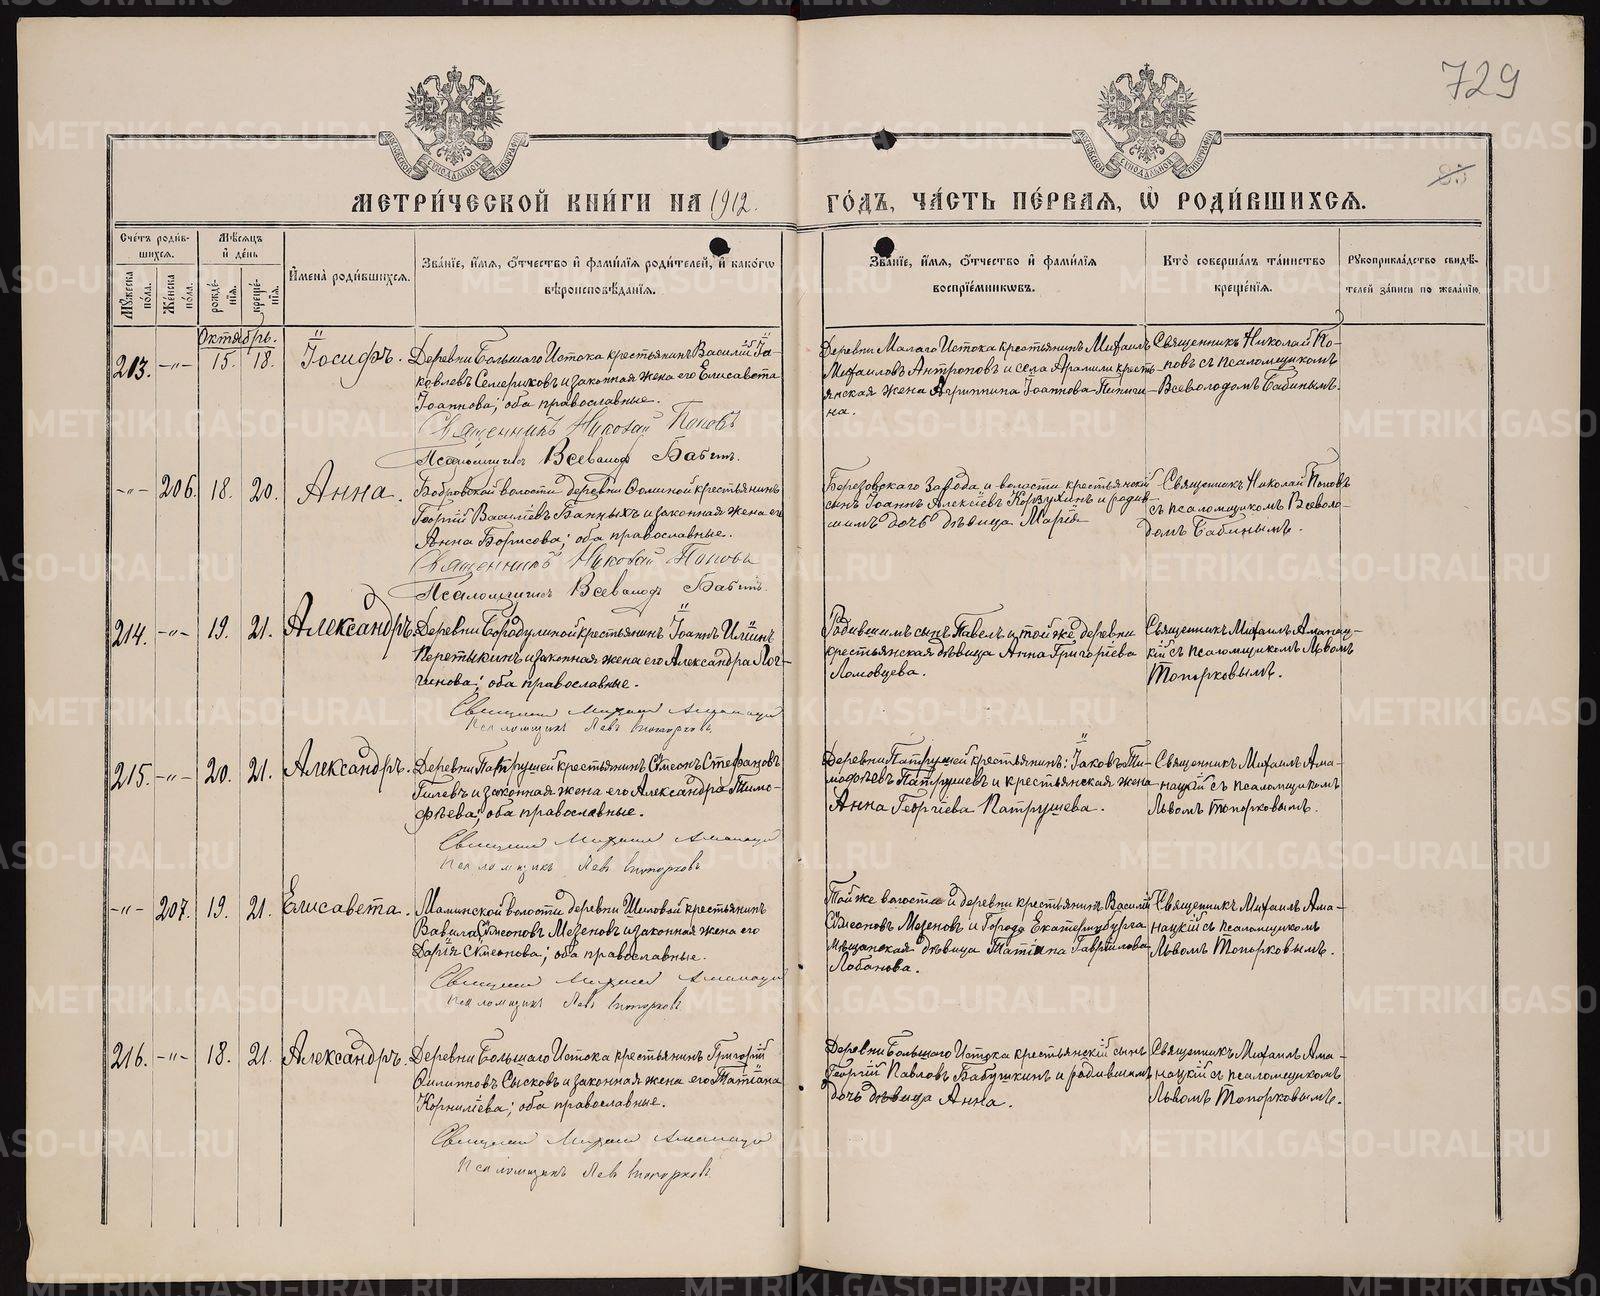 729
85
МЕТРИ́ЧЕСКОЙ КНИ́ГИ НА 1912.
ГО́ДЪ, ЧА́СТЬ ПЕ́РВАЯ, Ѽ РОДИ́ВШИХСЯ.
Сче́тъ роди́в-
шихся.
Му́жеска по́ла.
Же́нска по́ла.
Мѣ́сяцъ
и де́нь
рожде́-
нїя.
креще́-
нїя.
И҆мена̀ роди́вшихся.
Зва́нїе, и҆́мя, ѻ҆́тчество и҆ фами́лїя роди́телей, и҆ како́гѡ
вѣроисповѣ́данїя.
Зва́нїе, и҆́мя, ѻ҆́тчество и҆ фами́лїя
воспрїе́мникѡвъ.
Кто̀ соверша́лъ та́инство
креще́нїя.
Рукоприкла́дство свидѣ́-
телей за́писи по жела́нїю.
Октябрь.
213. -"- 15. 18. Іосифъ.
Деревни Большаго Истока крестьянинъ Василій Іа-
ковлевъ Семериковъ и законная жена его Елисавета
Іоаннова; оба православные.
Священникъ Николай Поповъ
Псаломщикъ Всеволод Бабинъ.
Деревни Малаго Истока крестьянинъ Михаилъ
Михаиловъ Антроповъ и села Арамили кресть-
янская жена Агриппина Іоаннова Пипиги-
на.
Священникъ Николай По-
повъ съ псаломщикомъ
Всеволодомъ Бабинымъ.
-"- 206. 18. 20. Анна.
Бобровской волости деревни Фоминой крестьянинъ
Георгій Васильевъ Банныхъ и законная жена его
Анна Борисова; оба православные.
Священникъ Николай Поповъ
Псаломщикъ Всеволодъ Бабинъ.
Березовскаго Завода и волости крестьянскій
сынъ Іоаннъ Алексіевъ Корзухинъ и родив-
шимъ дочь дѣвица Марія
Священникъ Николай Поповъ
съ псаломщикомъ Всеволо-
домъ Бабинымъ.
214. -"- 19. 21. Александръ.
Деревни Бородулиной крестьянинъ Іоаннъ Иліинъ
Перетыкинъ и законная жена его Александра Лог-
гинова; оба православные.
Священникъ Михаилъ Аманацкій
Псаломщикъ Левъ Топорковъ
Родившимъ сынъ Павелъ и той же деревни
крестьянская дѣвица Анна Григоріева
Ломовцева.
Священникъ Михаилъ Аманац-
кій съ псаломщикомъ Львомъ
Топорковымъ.
215. -"- 20. 21. Александръ.
Деревни Патрушей крестьянинъ Сѵмеонъ Стефановъ
Гилевъ и законная жена его Александра Тимо-
фѣева; оба православные.
Священникъ Михаилъ Аманацкій
Псаломщикъ Левъ Топорковъ
Деревни Патрушей крестьянинъ: Іаковъ Ти-
мофѣевъ Патрушевъ и крестьянская жена
Анна Георгіева Патрушева.
Священникъ Михаилъ Ама-
нацкій съ псаломщикомъ
Львомъ Топорковымъ.
-"- 207. 19. 21. Елисавета.
Маминской волости деревни Шиловой крестьянинъ
Вавила Сѵмеоновъ Мезеновъ и законная жена его
Дарія Сѵмеонова; оба православные.
Священникъ Михаилъ Аманацкій
Псаломщикъ Левъ Топорковъ
Той же волости и деревни крестьянинъ Василій
Сѵмеоновъ Мезеновъ и Города Екатеринбурга
мѣщанская дѣвица Татіана Гавріилова
Лобанова.
Священникъ Михаилъ Ама-
нацкій съ псаломщикомъ
Львомъ Топорковымъ.
216. -"- 18. 21. Александръ.
Деревни Большаго Истока крестьянинъ Григорій
Филипповъ Сысковъ и законная жена его Татіана
Корниліева; оба православные.
Священникъ Михаилъ Аманацкій
Псаломщикъ Левъ Топорковъ
Деревни Большаго Истока крестьянскій сынъ
Георгій Павловъ Бабушкинъ и родившимъ
дочь дѣвица Анна.
Священникъ Михаилъ Ама-
нацкій съ псаломщикомъ
Львомъ Топорковымъ.